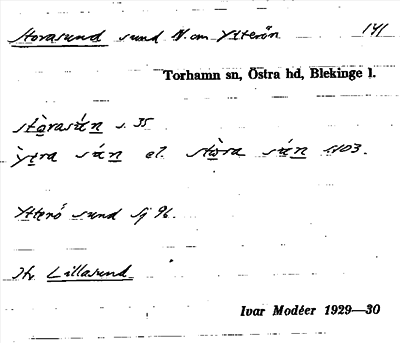 Storasund sund N. om Ytterön 141
Torhamn sn, Östra hd, Blekinge l.
stòrasún s. 35
ỳtra sún el. stòra sún s. 103.
Ytterö sund Sj 96.
Jfr Lillasund
Ivar Modéer 1929—30